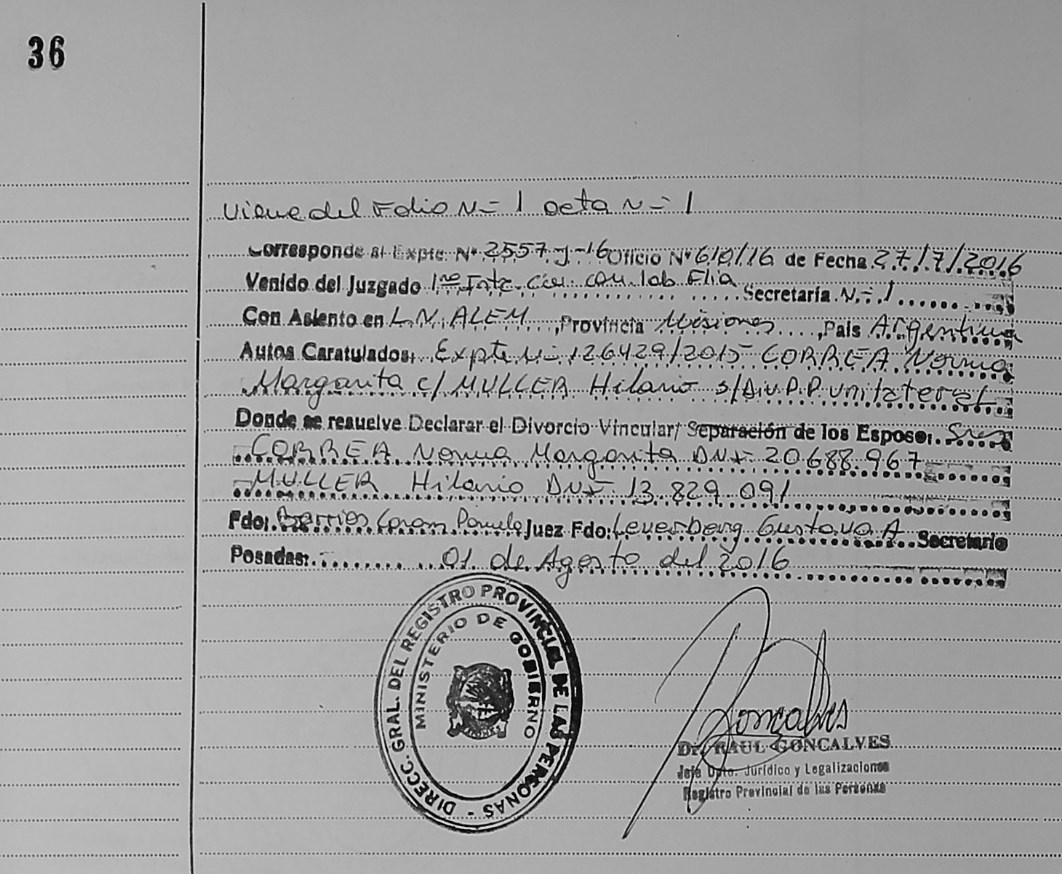 36
Viene del Folio N= 1 acta N= 1
Corresponde al Expte. N° 2557-J-16 Oficio N° 610/16 de Fecha 27/7/2016
Venido del Juzgado 1ra Inte. Civ. com. lab. Flia Secretaría N= 1
Con Asiento en L.N. ALEM, Provincia Misiones, País Argentina
Autos Caratulados: Expte N= 126429/2015 CORREA Norma
Margarita c/ MULLER Hilario s/Div. P.P. unilateral
Donde se resuelve Declarar el Divorcio Vincular/ Separación de los Esposos: Sres
CORREA Norma Margarita DNI 20.688.967
MULLER Hilario DNI 13.829.091
Fdo: Juez Fdo: Gustavo A Secretario
Posadas: 01 de Agosto del 2016
DIRECC. GRAL. DEL REGISTRO PROVINCIAL DE LAS PERSONAS -
MINISTERIO DE GOBIERNO
Goncalves
Dr. RAUL GONCALVES
Jefe Dpto. Jurídico y Legalizaciones
Registro Provincial de las Personas